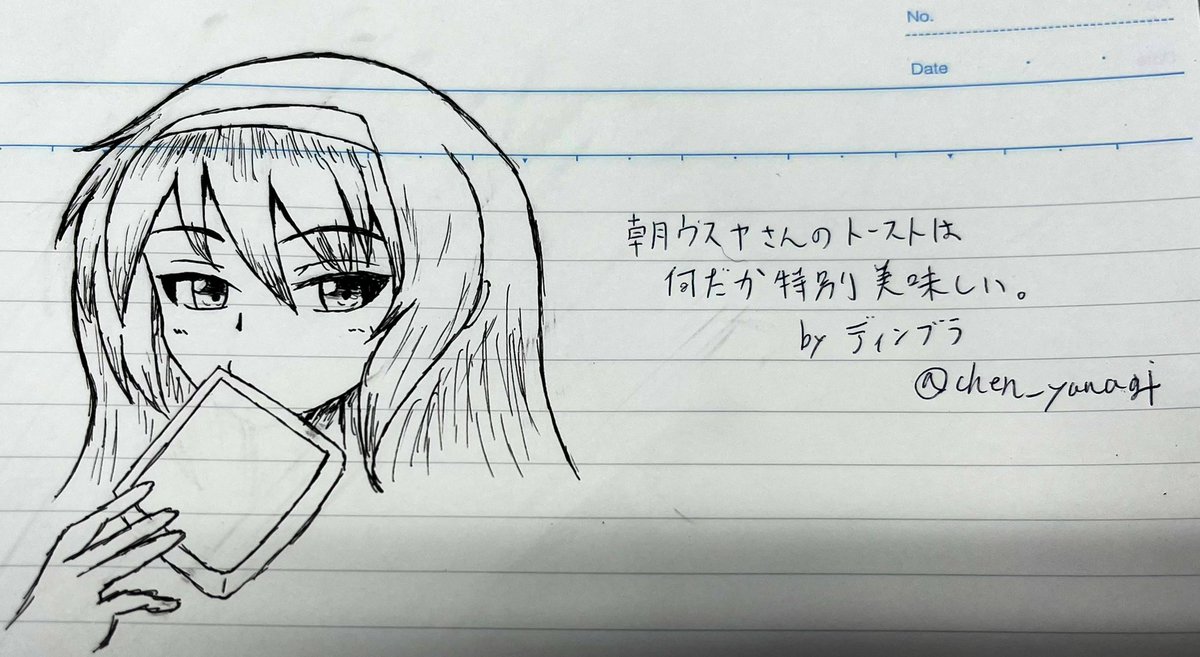 No.
Date
朝月ウスヤさんのトーストは
何だか特別美味しい。
by ディンブラ
@chen_yanagi